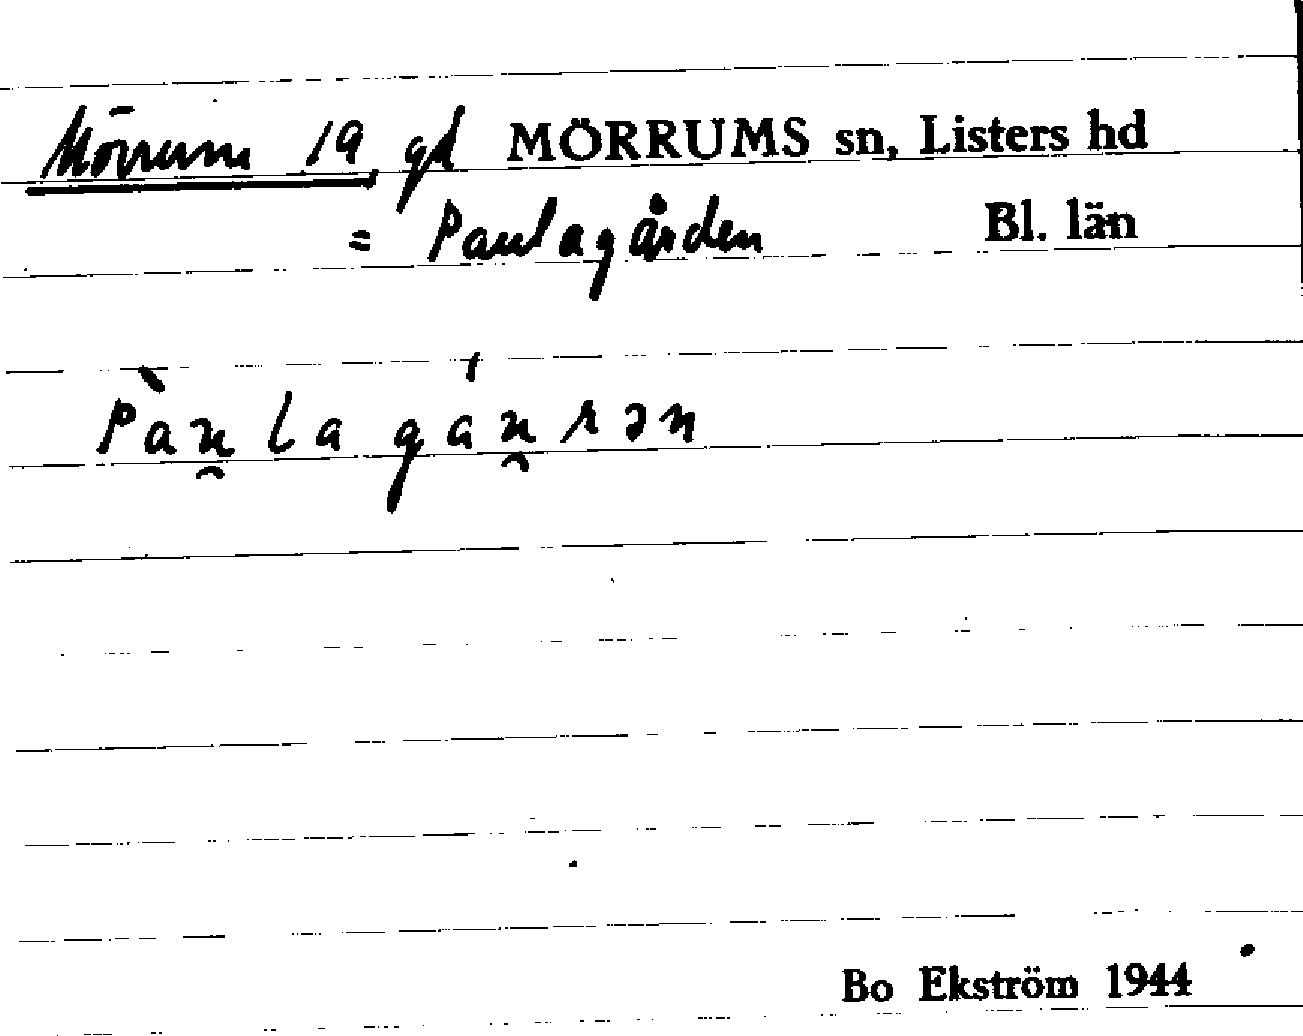 Mörrum 19 gd MÖRRUMS sn, Listers hd
= Paulagården Bl. län
Bo Ekström 1944